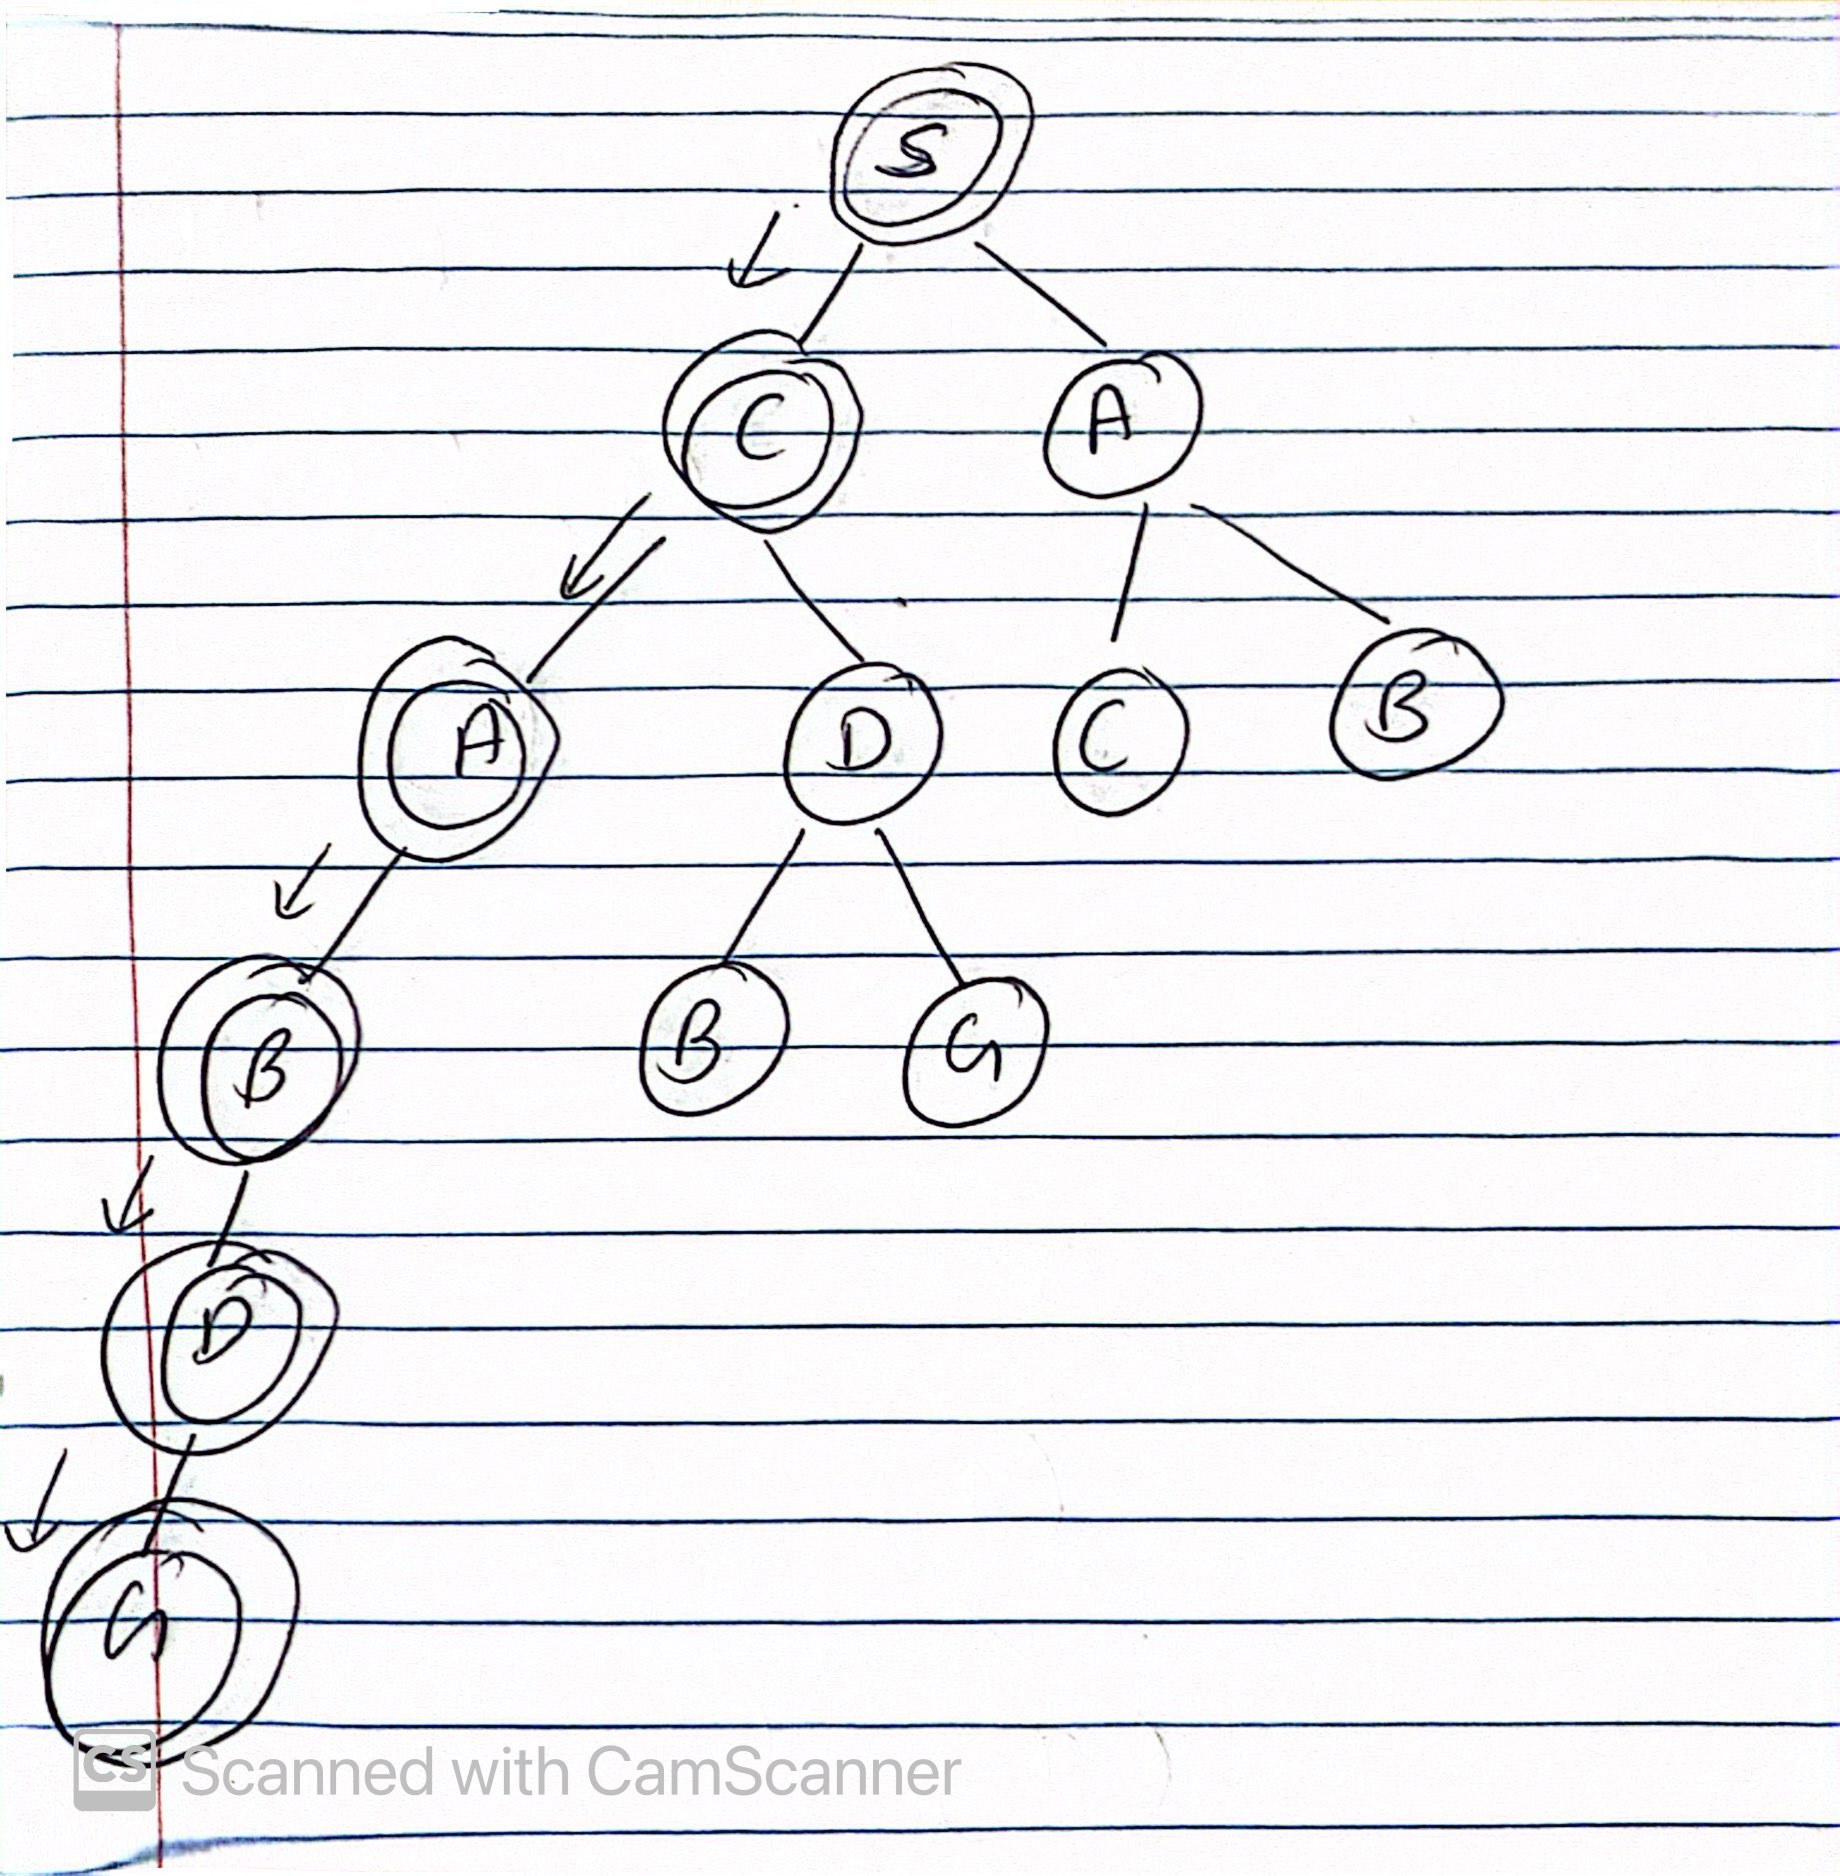 S
C A
A D C B
B B G
D
G
CS Scanned with CamScanner